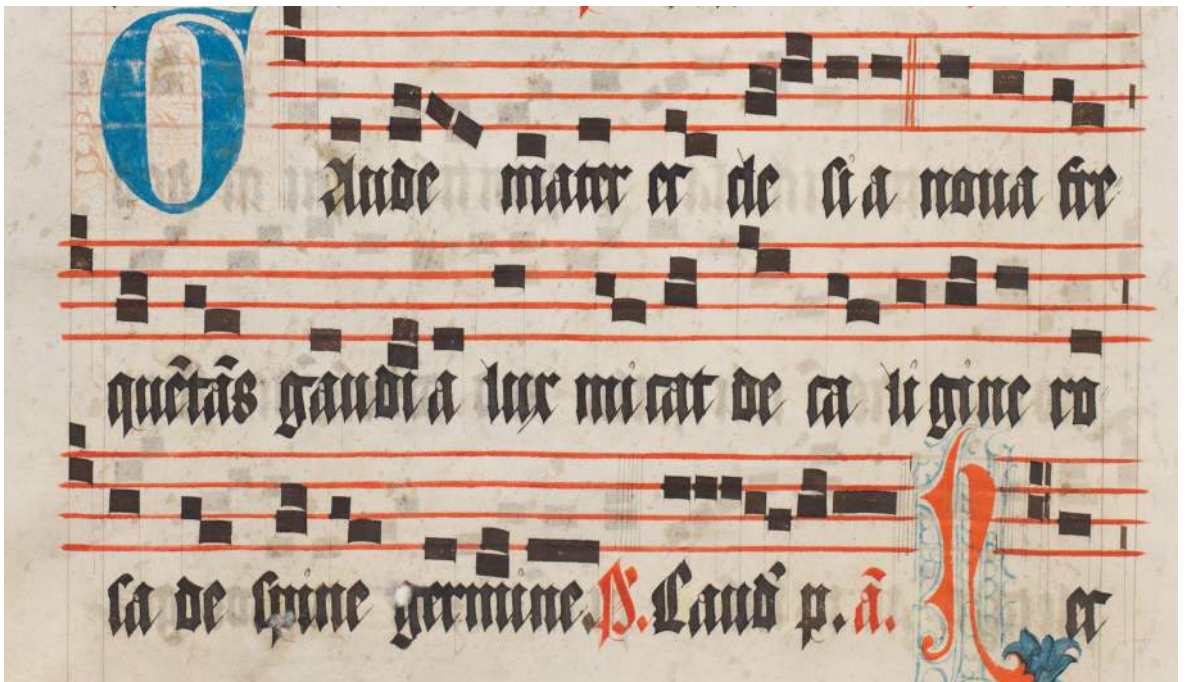 GAude mater ec cle si a noua fre
quētās gaudia lux micat de ca ligine ro
sa de spine germine. Laud p. ā. N ec